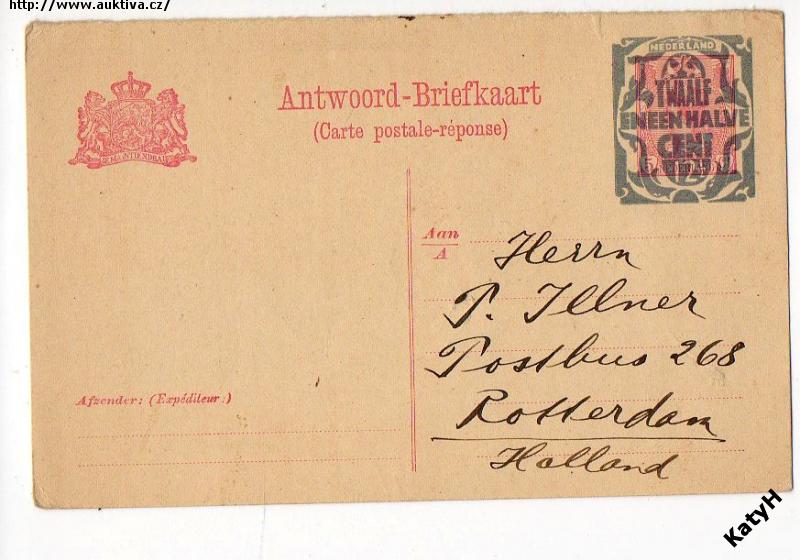 http://www.auktiva.cz/
NEDERLAND
TWAALF
EN EEN HALVE
CENT
12½
Antwoord-Briefkaart
(Carte postale-réponse)
Aan
A
Herrn
P. Illner
Postbus 268
Rotterdam
Holland
Afzender: (Expéditeur:)
KatyH